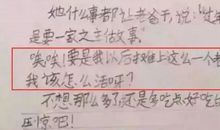 她什么事都让老爸干,说:"
是要一家之主做事。
"唉唉!要是我以后摊上这么一个老
我该怎么活呀?
不想那么多了,还是多吃点好吃
压惊吧!